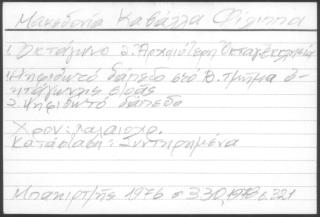 Μακεδονία Καβάλλα Φίλιπποι
1. Οκτάγωνο 2. Αρχαιότερη Οκταγ. Εκκλησία
1. Ψηφιδωτό δάπεδο στό Β. τμήμα ό-
κταγωνης
2. Ψηφιδωτό δάπεδο
Χρον: παλαιοχρ.
Κατάσταση: Συντηρημένα
Μπακιρτζής 1976 σ 330, 1978 σ. 221